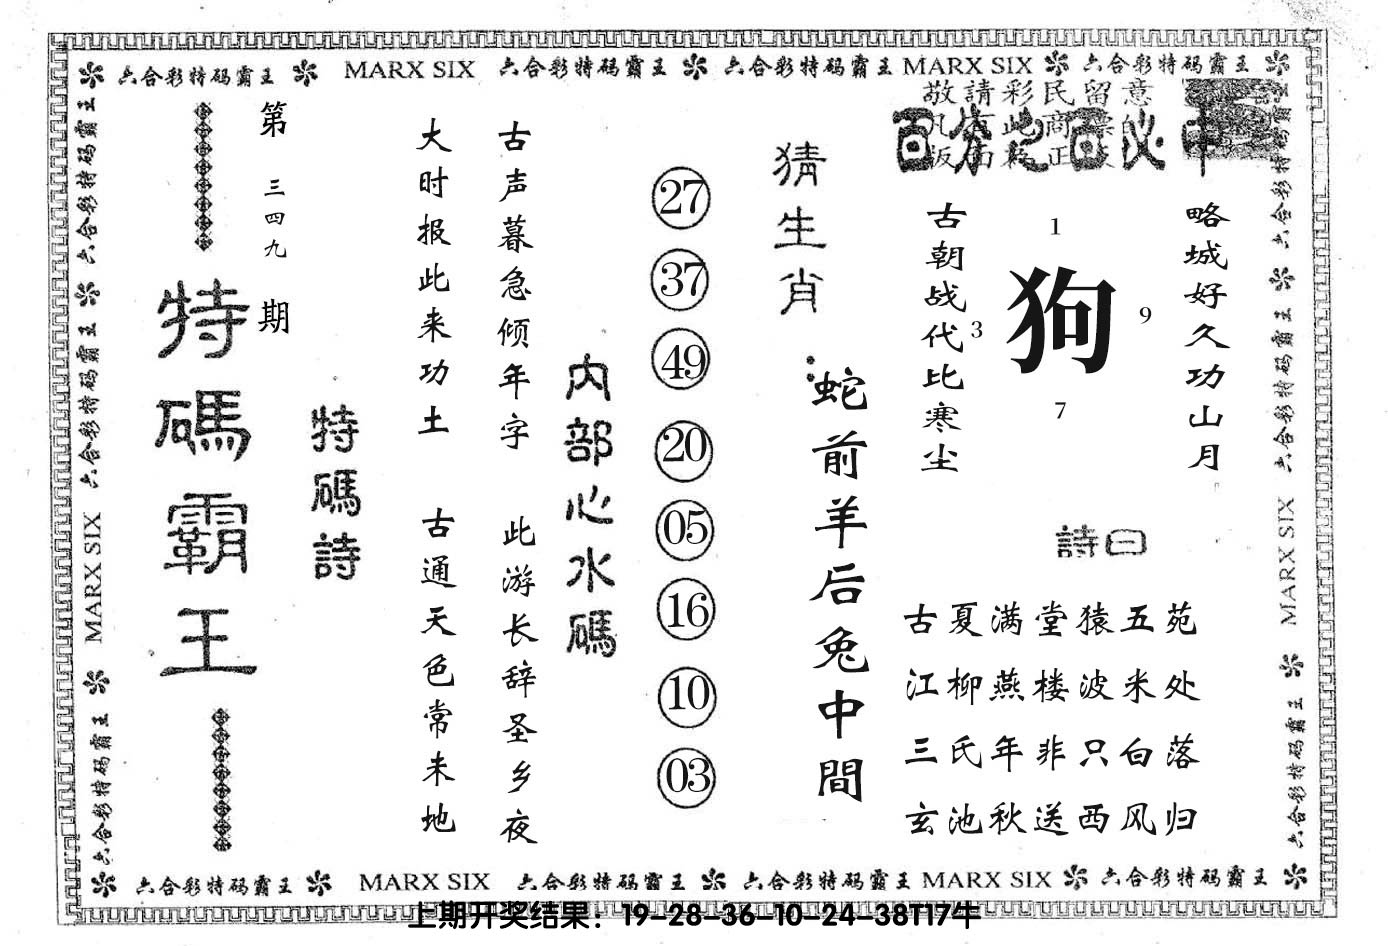 六合彩特码霸王 MARX SIX 六合彩特码霸王 六合彩特码霸王 MARX SIX 六合彩特码霸王
敬請彩民留意
百分之百必中
第三四九期
特碼霸王
特碼詩
大时报此来功土
古通天色常未地
古声暮急倾年字
此游长辞圣乡夜
内部心水碼
27
37
49
20
05
16
10
03
猜生肖:
蛇前羊后兔中間
古朝战代比寒尘
1
3
狗
9
7
略城好久功山月
詩曰
古夏满堂猿五苑
江柳燕楼波米处
三氏年非只白落
玄池秋送西风归
六合彩特码霸王 MARX SIX 六合彩特码霸王
六合彩特码霸王 MARX SIX 六合彩特码霸王
六合彩特码霸王 MARX SIX 六合彩特码霸王 六合彩特码霸王 MARX SIX 六合彩特码霸王
上期开奖结果：19-28-36-10-24-38T17牛